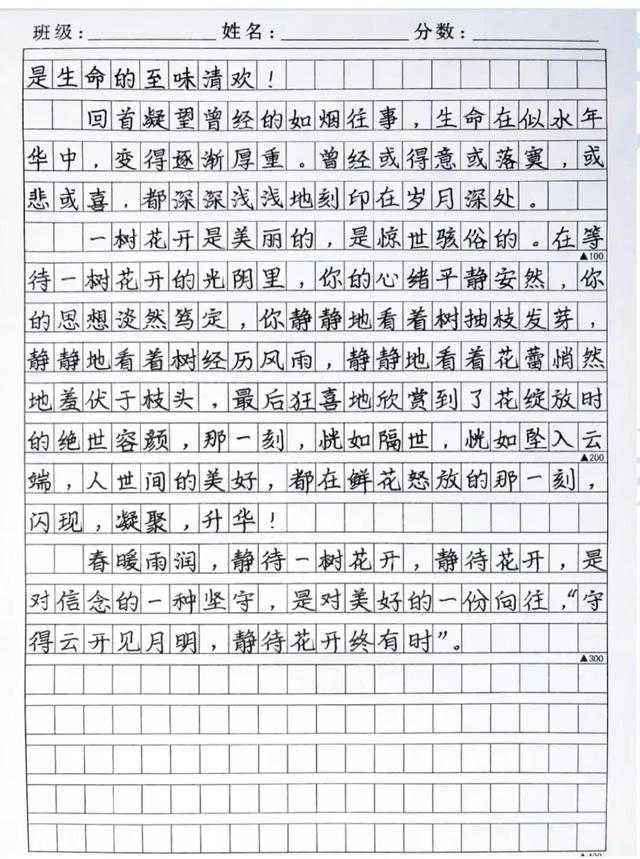 班级：　姓名：　分数：
是生命的至味清欢！
回首凝望曾经的如烟往事，生命在似水年
华中，变得逐渐厚重。曾经或得意或落寞，或
悲或喜，都深深浅浅地刻印在岁月深处。
一树花开是美丽的，是惊世骇俗的。在等
▲100
待一树花开的光阴里，你的心绪平静安然，你
的思想淡然笃定，你静静地看着树抽枝发芽，
静静地看着树经历风雨，静静地看着花蕾悄然
地羞伏于枝头，最后狂喜地欣赏到了花绽放时
的绝世容颜，那一刻，恍如隔世，恍如坠入云
▲200
端，人世间的美好，都在鲜花怒放的那一刻，
闪现，凝聚，升华！
春暖雨润，静待一树花开，静待花开，是
对信念的一种坚守，是对美好的一份向往，“守
得云开见月明，静待花开终有时”。
▲300